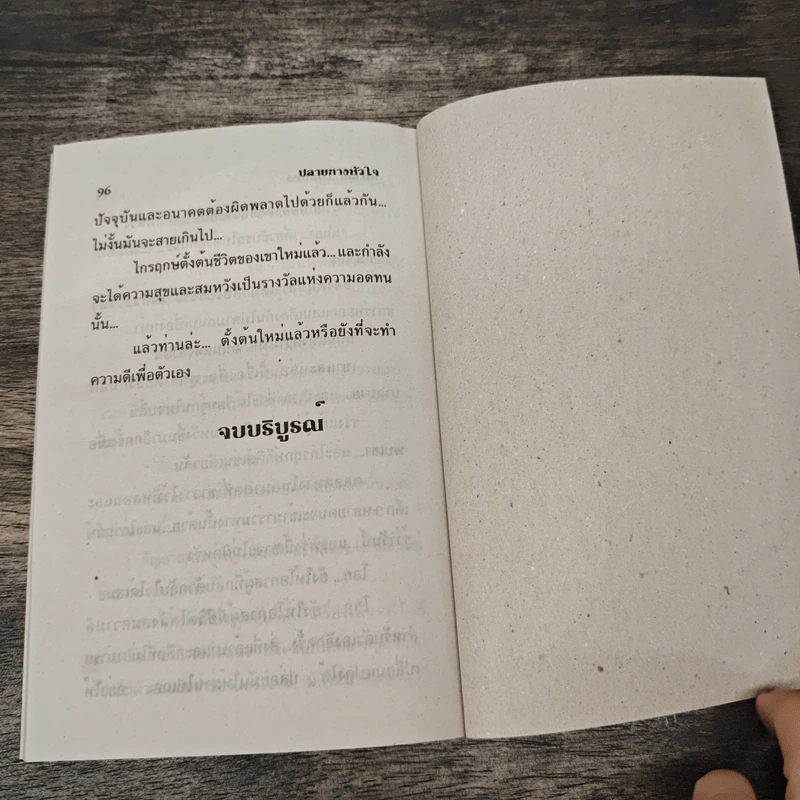 96
ปลายทางหัวใจ
ปัจจุบันและอนาคตต้องผิดพลาดไปด้วยก็แล้วกัน...
ไม่งั้นมันจะสายเกินไป...
ไกรฤกษ์ตั้งต้นชีวิตของเขาใหม่แล้ว... และกำลัง
จะได้ความสุขและสมหวังเป็นรางวัลแห่งความอดทน
นั้น...
แล้วท่านล่ะ... ตั้งต้นใหม่แล้วหรือยังที่จะทำ
ความดีเพื่อตัวเอง
จบบริบูรณ์